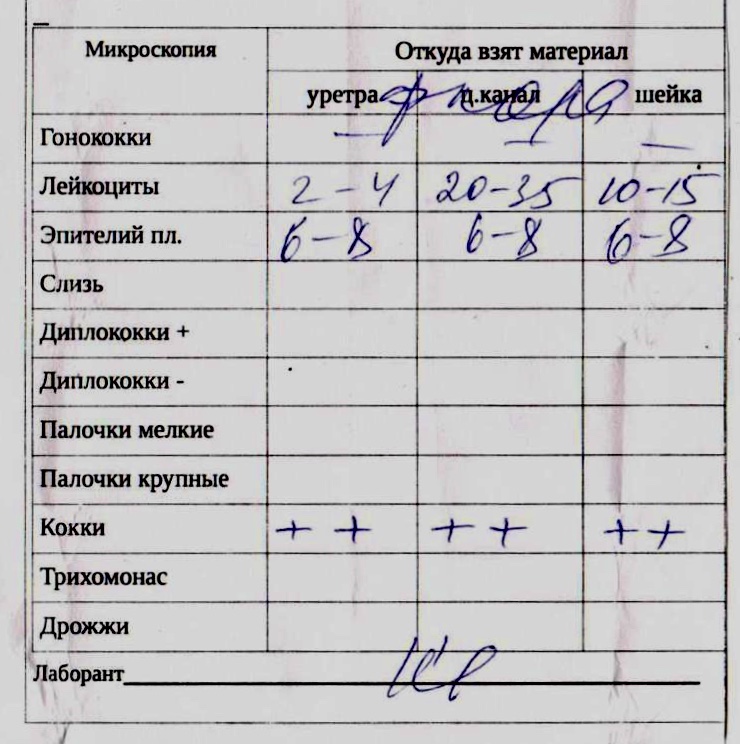 Микроскопия Откуда взят материал
уретра ц.канал шейка
флора
Гонококки — — —
Лейкоциты 2-4 20-35 10-15
Эпителий пл. 6-8 6-8 6-8
Слизь
Диплококки +
Диплококки -
Палочки мелкие
Палочки крупные
Кокки + + + + + +
Трихомонас
Дрожжи
Лаборант